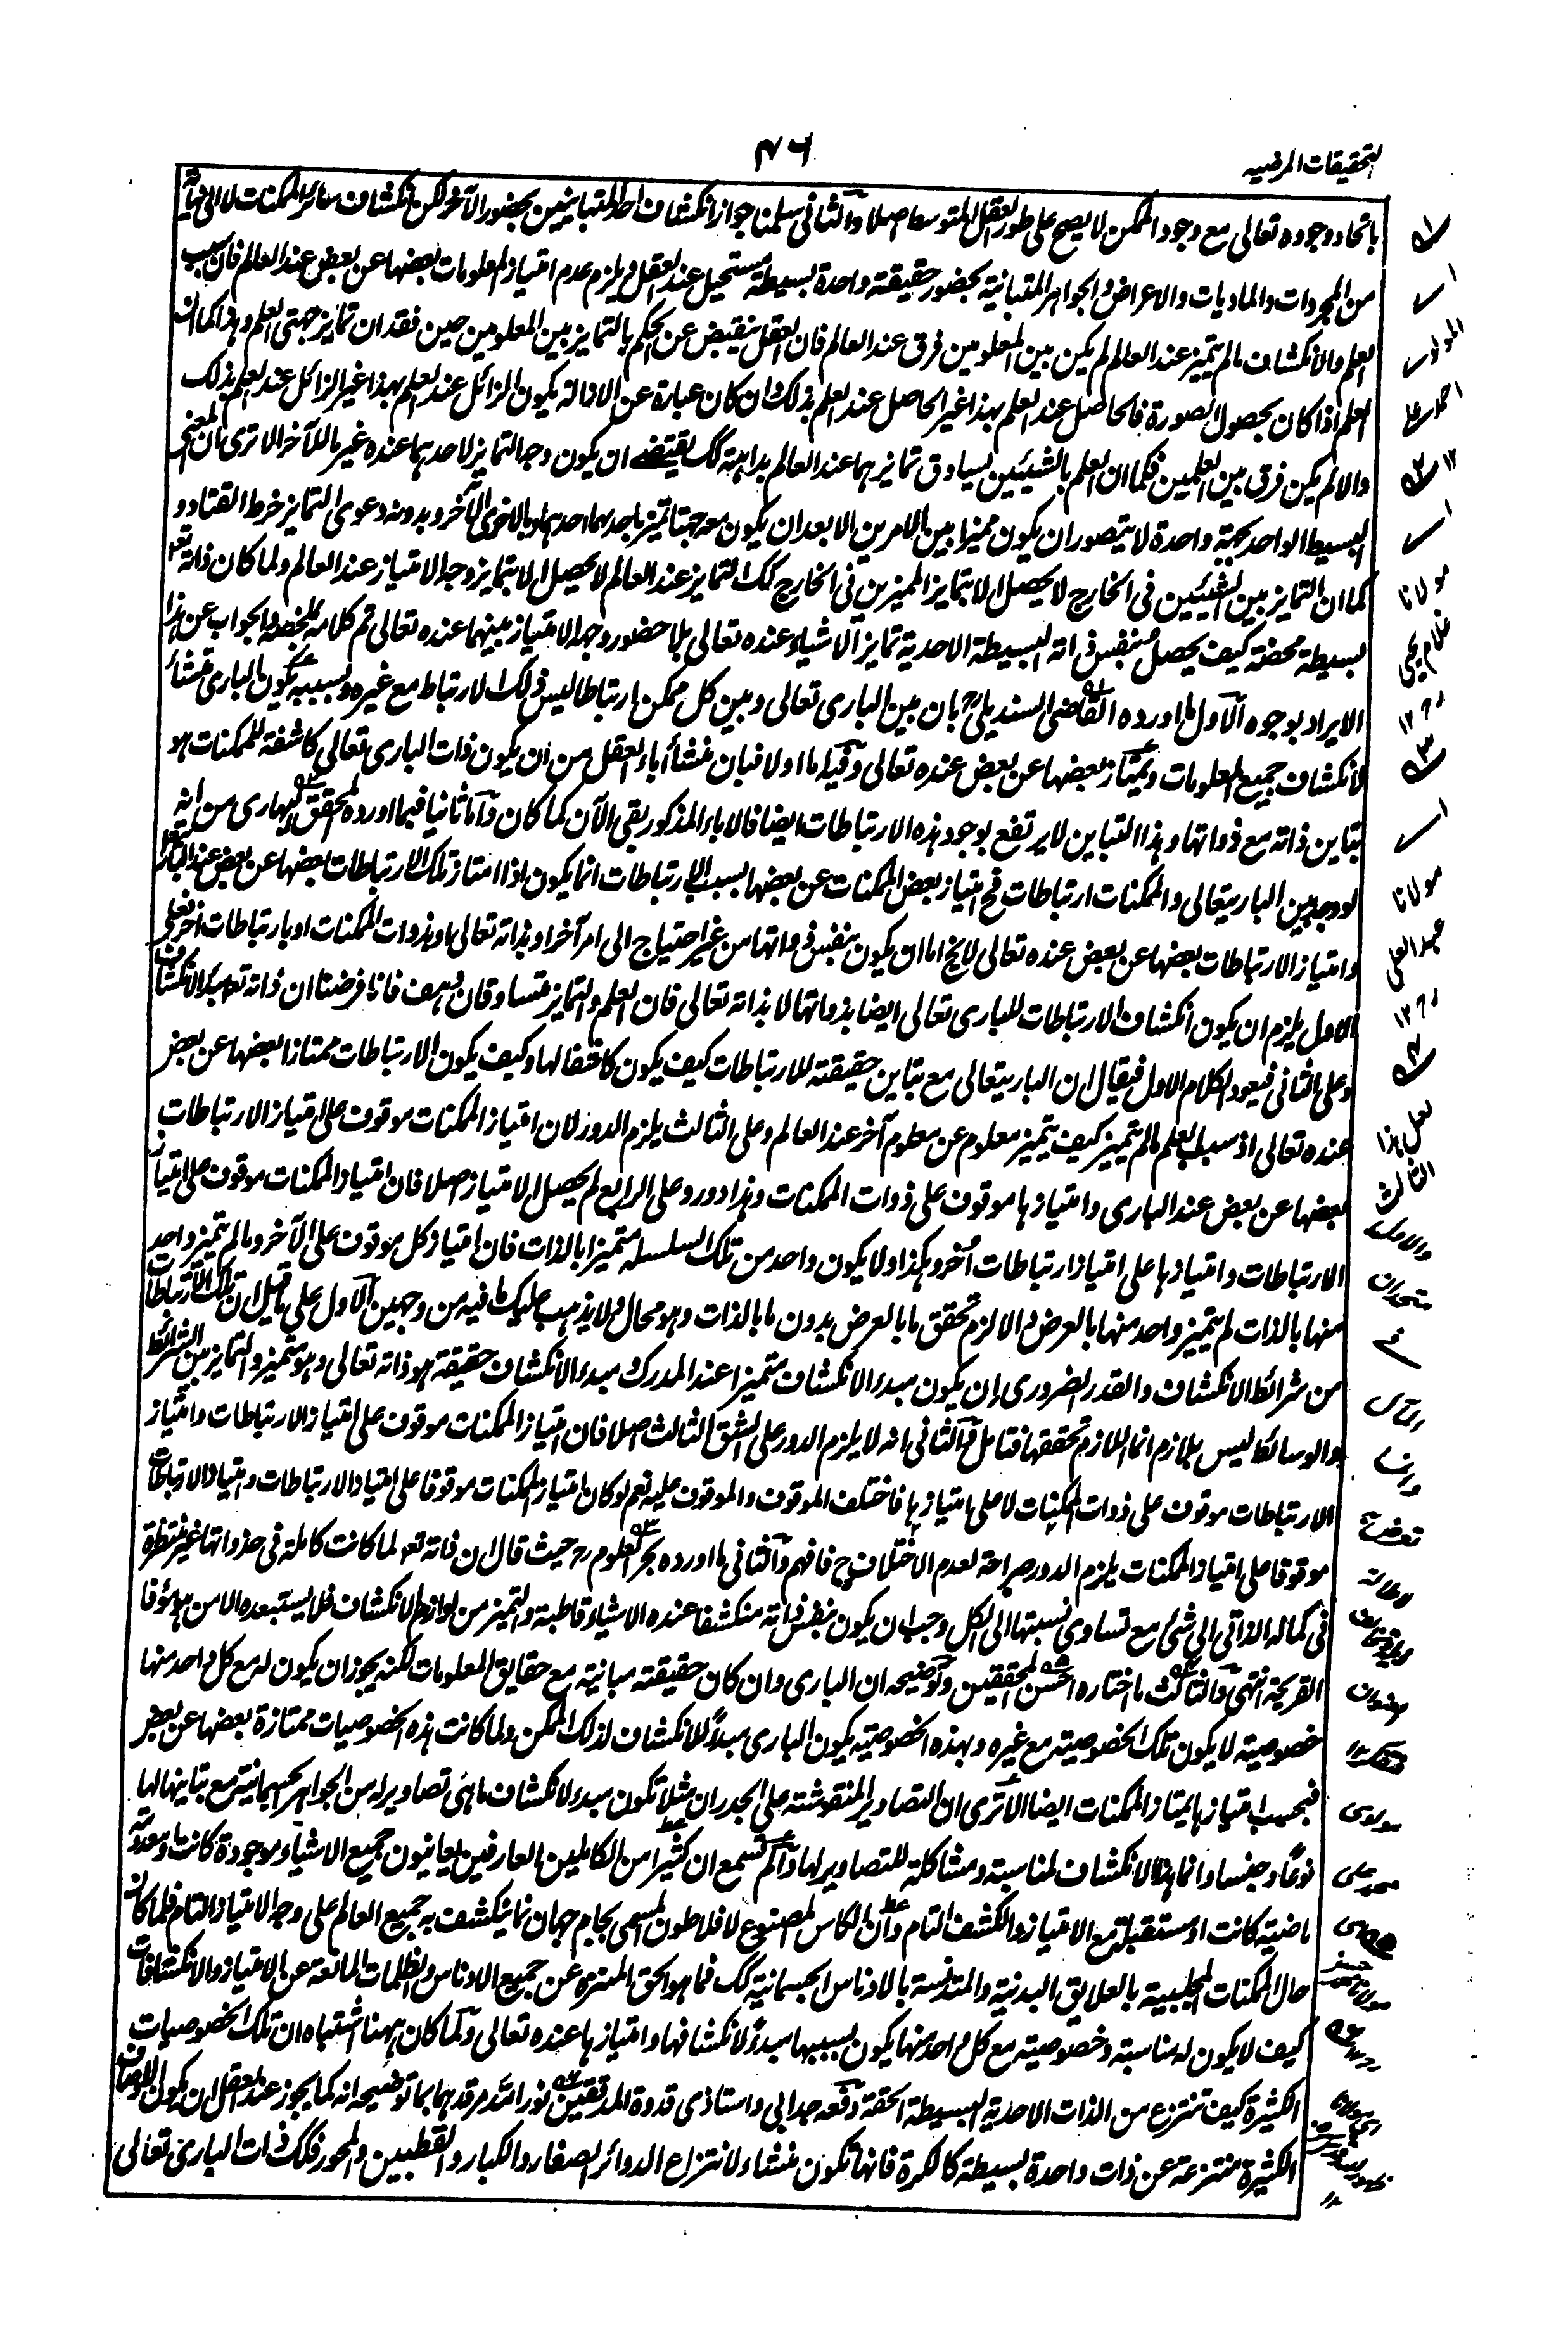 التحقيقات المرضيه
٤٦
باتحاد وجوده تعالى مع وجود الممكن لا يصح على طور العقل المتوسط اصلا والثانى سلمنا جواز انكشاف احد المتباينين بحضور الآخر لكن انكشاف سائر الممكنات لا الى نهاية
من المجردات والماديات والاعراض والجواهر المتباينة بحضور حقيقة واحدة بسيطة مستحيل عند العقل ويلزم عدم امتياز المعلومات بعضها عن بعض عند العالم فان سبب
العلم والانكشاف ما لم يتميز عند العالم لم يكن بين المعلومين فرق عند العالم فان العقل ينقبض عن الحكم بالتمايز بين المعلومين حين فقدان تمايز جهتى العلم وهذا كما ان
العلم اذا كان بحصول الصورة فالحاصل عند العلم بهذا غير الحاصل عند العلم بذلك وان كان عبارة عن الازالة يكون الزائل عند العلم بهذا غير الزائل عند العلم بذلك
والا لم يكن فرق بين العلمين فكما ان العلم بالشيئين يساوق تمايزهما عند العالم بداهة كك يقتضى ان يكون وجه التمايز لاحدهما عنده غير ما للآخر الا ترى ان المعنى
البسيط الواحد بجهة واحدة لا يتصور ان يكون مميزا بين الامرين الا بعد ان يكون معه جهتا تميز باحدهما احدهما وبالاخرى الآخر وبدونه دعوى التمايز خرط القتاد و
كما ان التمايز بين الشيئين فى الخارج لا يحصل الا بتمايز المميزين فى الخارج كك التمايز عند العالم لا يحصل الا بتمايز وجه الامتياز عند العالم ولما كان ذاته تعه
بسيطة محضة كيف يحصل بنفس ذاته البسيطة الاحدية تمايز الاشياء عنده تعالى بلا حضور وجه الامتياز بينهما عنده تعالى تم كلامه بملخصه والجواب عن هذا
الايراد بوجوه الاول ما اورده القاضى السنديلى رح بان بين البارى تعالى وبين كل ممكن ارتباطا ليس ذلك الارتباط مع غيره وبسببه يكون البارى منشأ
لانكشاف جميع المعلومات ويمتاز بعضها عن بعض عنده تعالى وفيه ما اولا فبان منشأ اباء العقل من ان يكون ذات البارى تعالى كاشفة للممكنات هو
تباين ذاته مع ذواتها وهذا التباين لا يرتفع بوجود هذه الارتباطات ايضا فالاباء المذكور بقى الآن كما كان واما ثانيا فبما اورده المحقق البهارى من انه
لو وجد بين البارى تعالى والممكنات ارتباطات فح امتياز بعض الممكنات عن بعضها بسبب الارتباطات انما يكون اذا امتاز تلك الارتباطات بعضها عن بعض عند البارى تعه
وامتياز الارتباطات بعضها عن بعض عنده تعالى لا يخ اما ان يكون بنفس ذواتها من غير احتياج الى امر آخر او بذاته تعالى او بذوات الممكنات او بارتباطات اخر فعلى
الاول يلزم ان يكون انكشاف الارتباطات للبارى تعالى ايضا بذواتها لا بذاته تعالى فان العلم والتمايز متساوقان وهف فانا فرضنا ان ذاته تعه مبدء الانكشاف
وعلى الثانى فيعود الكلام الاول فيقال ان البارى تعالى مع تباين حقيقته للارتباطات كيف يكون كاشفا لها وكيف يكون الارتباطات ممتازا بعضها عن بعض
عنده تعالى اذ سبب العلم ما لم يتميز كيف يتميز معلوم عن معلوم آخر عند العالم وعلى الثالث يلزم الدور لان امتياز الممكنات موقوف على امتياز الارتباطات
بعضها عن بعض عند البارى وامتيازها موقوف على ذوات الممكنات وهذا دور وعلى الرابع لم يحصل الامتياز اصلا فان امتياز الممكنات موقوف على امتياز
الارتباطات وامتيازها على امتياز ارتباطات اخر وهكذا ولا يكون واحد من تلك السلسلة متميزا بالذات فان امتياز كل موقوف على الآخر وما لم يتميز واحد
منها بالذات لم يتميز واحد منها بالعرض والا لزم تحقق ما بالعرض بدون ما بالذات وهو محال ولا يذهب عليك ما فيه من وجهين الاول على ما قيل ان تلك الارتباطات
من شرائط الانكشاف والقدر الضرورى ان يكون مبدء الانكشاف متميزا عند المدرك ومبدء الانكشاف حقيقة هو ذاته تعالى وهو متميز والتمايز بين الشرائط
والوسائط ليس بلازم انما اللازم تحققها فتامل والثانى انه لا يلزم الدور على الشق الثالث اصلا فان امتياز الممكنات موقوف على امتياز الارتباطات وامتياز
الارتباطات موقوف على ذوات الممكنات لا على امتيازها فاختلف الموقوف والموقوف عليه نعم لو كان امتياز الممكنات موقوفا على امتياز الارتباطات وامتياز الارتباطات
موقوفا على امتياز الممكنات يلزم الدور صراحة لعدم الاختلاف ح فافهم والثانى ما اورده بحر العلوم رح حيث قال ان ذاته تعه لما كانت كاملة فى حذ ذواتها غير منتظرة
فى كماله الذاتى الى شئ مع تساوى نسبتها الى الكل وجب ان يكون بنفس ذاته منكشفا عنده الاشياء قاطبة والتميز من لوازم الانكشاف فلا يستبعده الا من هو مؤفا
القريحة انتهى والثالث ما اختاره احسن المحققين وتوضيحه ان البارى وان كان حقيقته مبائنة مع حقايق المعلومات لكنه يجوز ان يكون له مع كل واحد منها
خصوصية لا يكون تلك الخصوصية مع غيره وبهذه الخصوصية يكون البارى مبدءً للانكشاف لذلك الممكن ولما كانت هذه الخصوصيات ممتازة بعضها عن بعض
فبحسب امتيازها يمتاز الممكنات ايضا الا ترى ان التصاوير المنقوشة على الجدران مثلا تكون مبدء لانكشاف ما هى تصاوير له من الجواهر الجسمانية مع تباينها لها
نوعًا وجنسا وانما هذا الانكشاف لمناسبة ومشاكلة للتصاوير لها والم تسمع ان كثيرا من الكاملين العارفين يعاينون جميع الاشياء موجودة كانت او معدومة
ماضية كانت او مستقبلة مع الامتياز والكشف التام وان الكاس المصنوع لافلاطون المسمى بجام جهان نما ينكشف به جميع العالم على وجه الامتياز التام فلما كان
حال الممكنات المجلببة بالعلايق البدنية والمتدنسة بالادناس الجسمانية كك فما هو الحق المنزه عن جميع الادناس والظلمات المانعة عن الامتياز والانكشافات
كيف لا يكون له مناسبة وخصوصية مع كل واحد منها يكون بسببها مبدءً لانكشافها وامتيازها عنده تعالى ولما كان ههنا اشتباه ان تلك الخصوصيات
الكثيرة كيف تنتزع من الذات الاحدية البسيطة الحقة دفعه جدابى واستاذى قدوة المدققين نور الله مرقدهما بما توضيحه انه كما يجوز عند العقل ان يكون الاوصاف
الكثيرة منتزعة عن ذات واحدة بسيطة كالكرة فانها تكون منشاء لانتزاع الدوائر الصغار والكبار والقطبين والمحور فكك ذات البارى تعالى
المولوى
احمد على
١٢
مولانا
غلام يحيى
مولانا
عبد العلى
لعل هذا
الثالث
والاول
متحدان